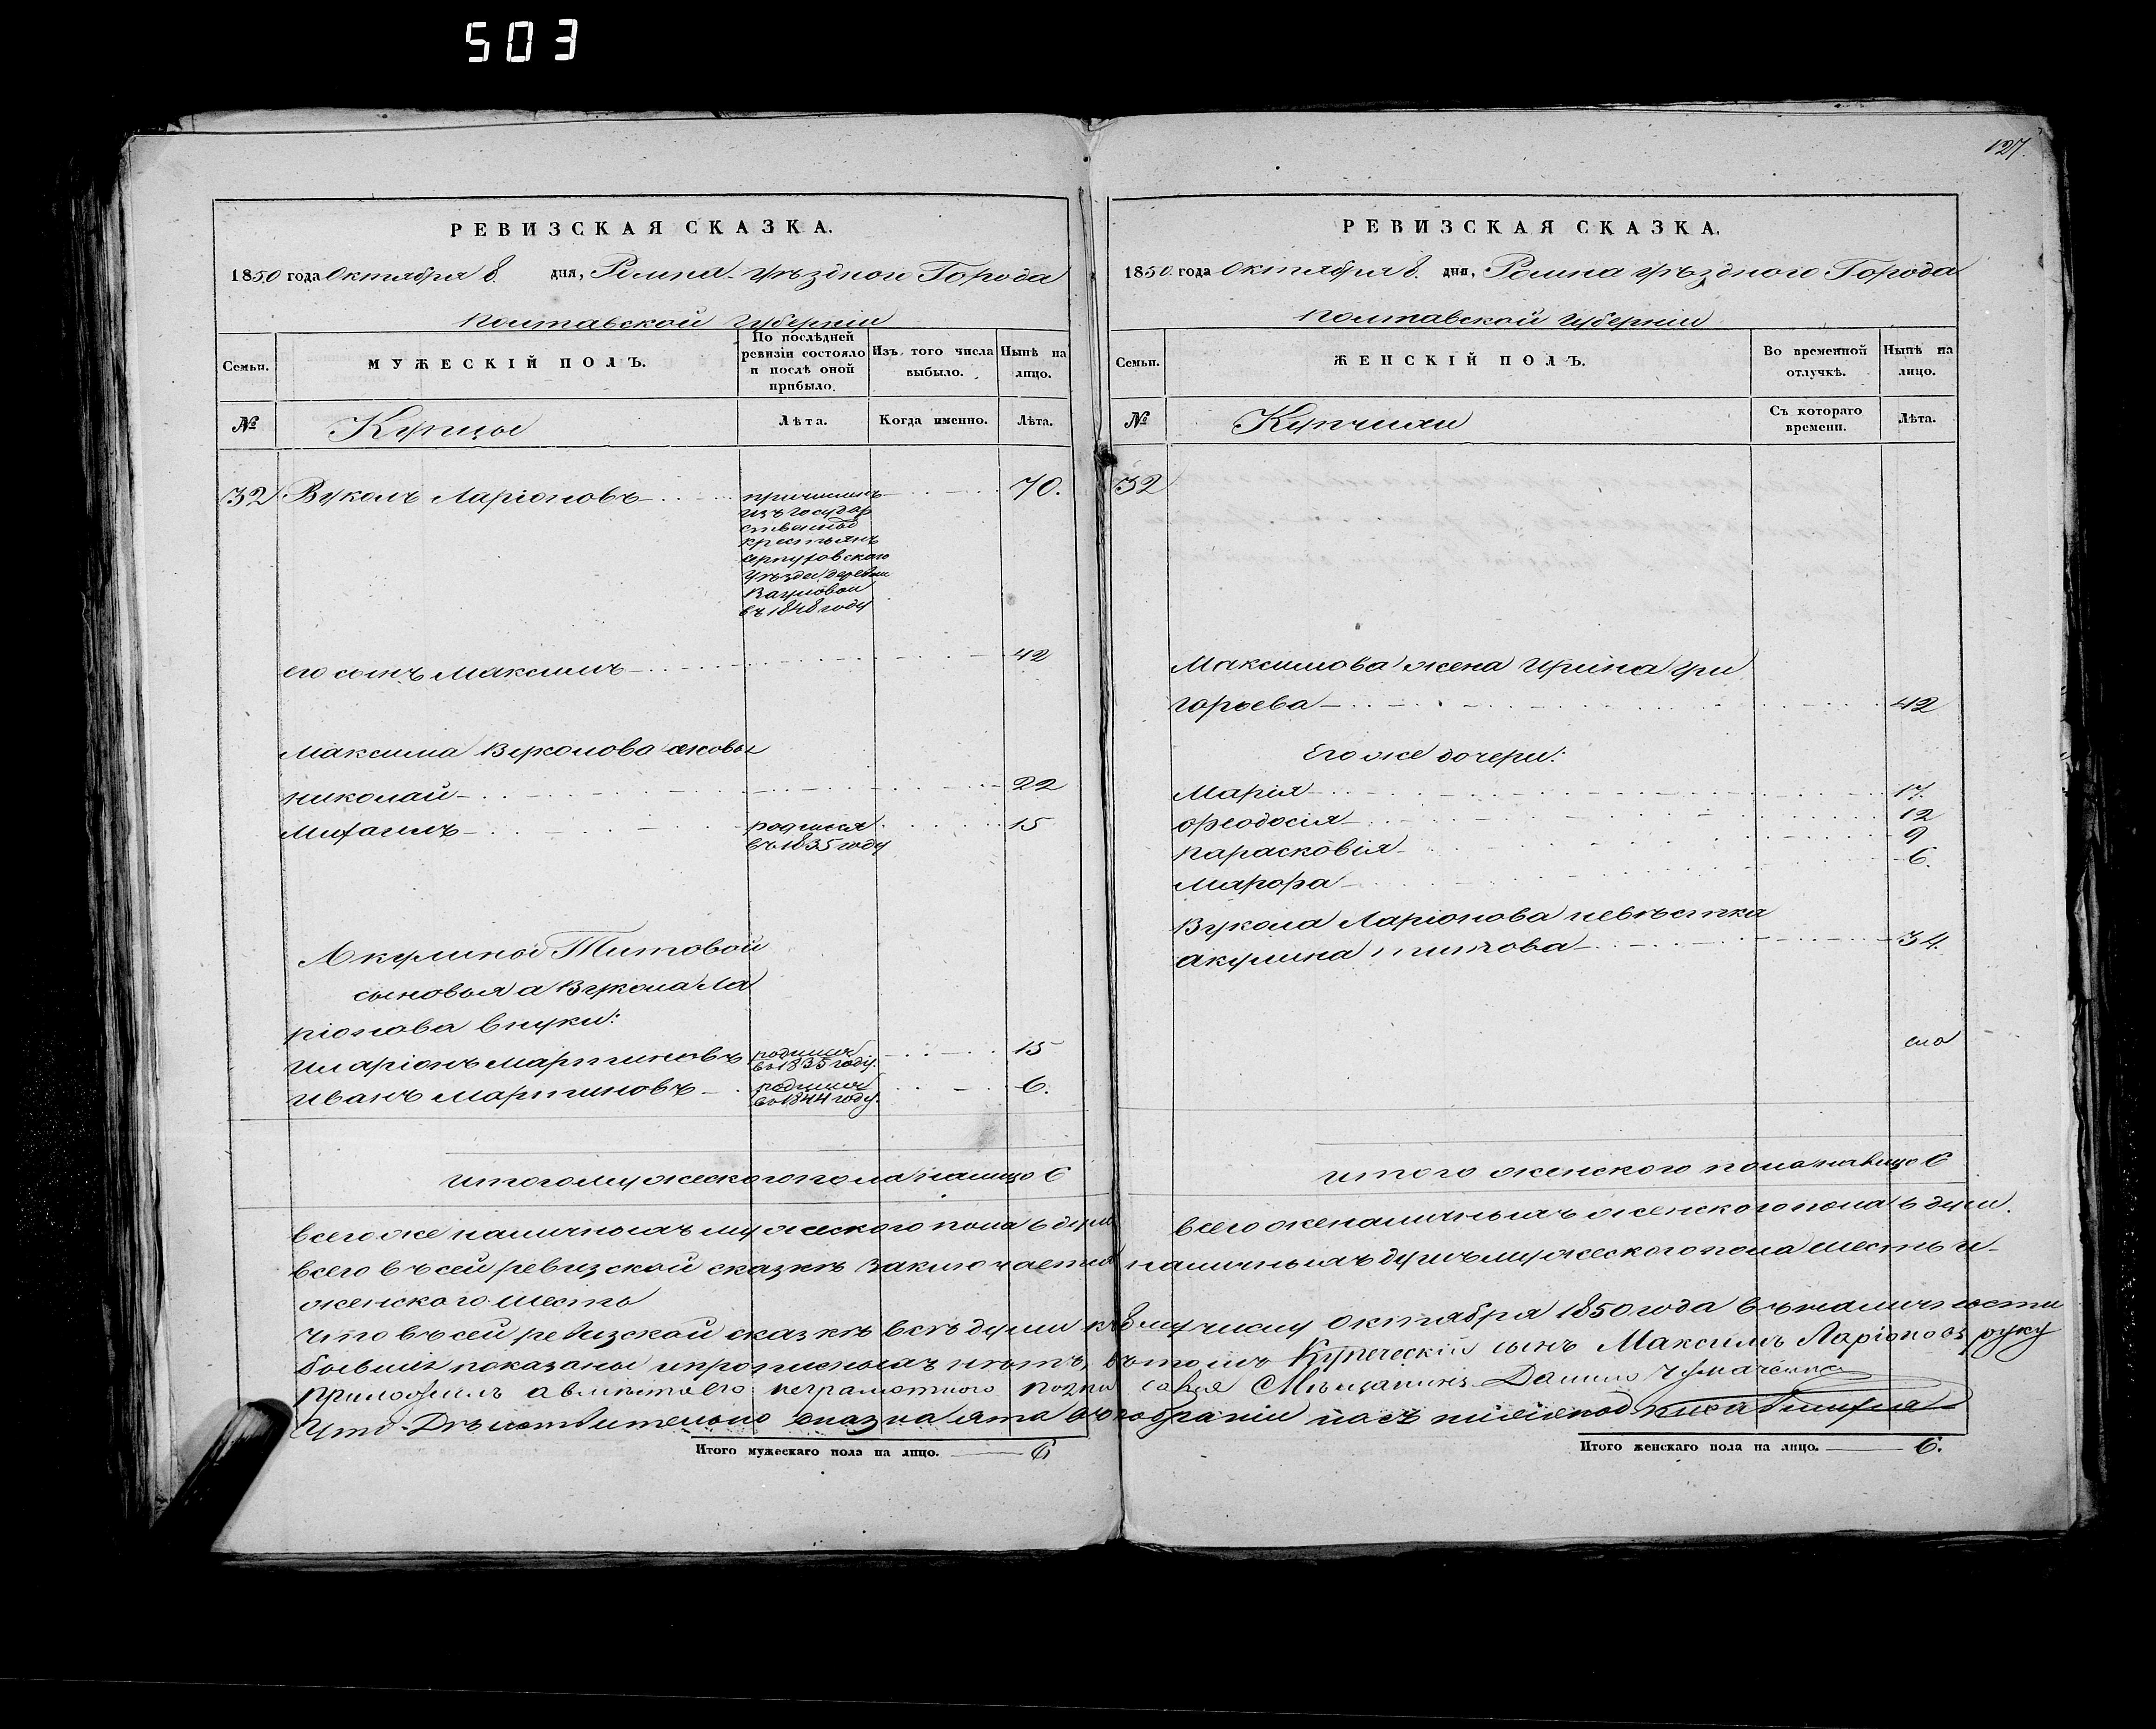 503
127.
РЕВИЗСКАЯ СКАЗКА.
1850 года Октября 8. дня, Ромна уѣзднои Города
Полтавской Губерніи
Семьи.
МУЖЕСКІЙ ПОЛЪ.
По послѣдней ревизіи состояло и послѣ оной прибыло.
Изъ того числа выбыло.
Нынѣ на лицо.
№
Купцы
Лѣта.
Когда именно.
Лѣта.
32
Вуколъ Ларіоновъ
причисленъ
изъ государ
ственныхъ
крестьянъ
уѣзда деревни
въ 1848 году
70.
его сынъ Максимъ
42
Максима Вуколова сыновья
Николай
22
Михаилъ
родился
въ 1835 году
15
Акулины Титовой
сыновья а Вукола Ла
ріонова внуки:
Иларіонъ Мартиновъ
родился
въ 1835 году.
15
Иванъ Мартиновъ
родился
въ 1844 году.
6.
итого мужеского пола налицо 6
всего же наличныхъ мужеского пола 6 душ
РЕВИЗСКАЯ СКАЗКА.
1850. года Октября 8. дня, Ромна уѣздного Города
Полтавской Губерніи
Семьи.
ЖЕНСКІЙ ПОЛЪ.
Во временной отлучкѣ.
Нынѣ на лицо.
№
Купчихи
Съ котораго времени.
Лѣта.
32
Максимова жена Ирина Гри
горьева
42
Его же дочери:
Марія
17.
Феодосія
12
Парасковія
9
Мавра
6.
Вукола Ларіонова невѣстка
Акулина Титова
34.
итого женского пола налицо 6
всего же наличныхъ женского пола 6 душ.
всего въ сей ревизской сказкѣ заключается наличныхъ душъ мужеского пола шесть и
женского шесть
что въ сей ревизской сказкѣ всѣ души къ 8му числу Октября 1850 года въ наличности
бывшія показаны и прописныхъ нѣтъ, въ томъ Купеческій сынъ Максимъ Ларіоновъ руку
приложилъ а вмѣсто его неграмотного подписался Мѣщанинъ Данило Чумаченко
Что Дѣйствительно сказка ята
Итого мужескаго пола на лицо. 6
Итого женскаго пола на лицо. 6.